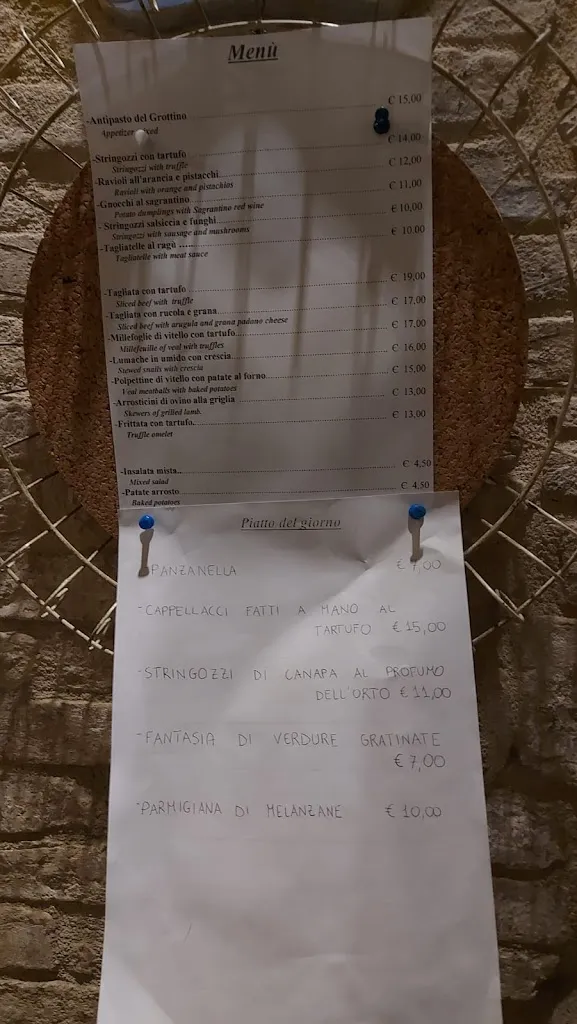 Menù
-Antipasto del Grottino ........ € 15,00
Appetizer mixed
-Stringozzi con tartufo ........ € 14,00
Stringozzi with truffle
-Ravioli all'arancia e pistacchi ........ € 12,00
Ravioli with orange and pistachios
-Gnocchi al sagrantino ........ € 11,00
Potato dumplings with Sagrantino red wine
- Stringozzi salsiccia e funghi ........ € 10,00
Stringozzi with sausage and mushrooms
-Tagliatelle al ragù ........ € 10.00
Tagliatelle with meat sauce
-Tagliata con tartufo ........ € 19,00
Sliced beef with truffle
-Tagliata con rucola e grana ........ € 17,00
Sliced beef with arugula and grana padano cheese
-Millefoglie di vitello con tartufo ........ € 17,00
Millefeuille of veal with truffles
-Lumache in umido con crescia ........ € 16,00
Stewed snails with crescia
-Polpettine di vitello con patate al forno ........ € 15,00
Veal meatballs with baked potatoes
-Arrosticini di ovino alla griglia ........ € 13,00
Skewers of grilled lamb.
-Frittata con tartufo ........ € 13,00
Truffle omelet
-Insalata mista.. ........ € 4,50
Mixed salad
-Patate arrosto ........ € 4,50
Baked potatoes
Piatto del giorno
PANZANELLA € 7,00
-CAPPELLACCI FATTI A MANO AL
TARTUFO € 15,00
-STRINGOZZI DI CANAPA AL PROFUMO
DELL'ORTO € 11,00
-FANTASIA DI VERDURE GRATINATE
€ 7,00
-PARMIGIANA DI MELANZANE € 10,00